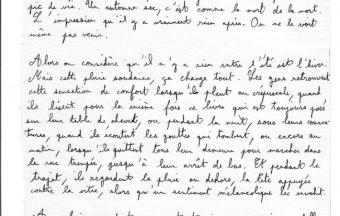 pic de vie. Un automne sec, c'est comme la mort de la mort.
L'impression qu'il y a vraiment rien après. On ne le voit
même pas venir.
Alors on considère qu'il n'y a rien entre l'été et l'hiver.
Mais cette pluie soudaine, ça change tout. Les gens retrouvent
cette sensation de confort lorsqu'ils pleut au crépuscule, quand
ils lisent pour la énième fois ce livre qui est toujours posé
sur leur table de chevet, ou pendant la nuit, sous leurs couver
tures, quand ils écoutent les gouttes qui tombent, ou encore au
matin, lorsqu'ils quittent tous leur demeure pour marcher dans
la rue trempée, jusqu'à leur arrêt de bus. Et pendant le
trajet, ils regardent la pluie au dehors, la tête appuyée
contre la vitre, alors qu'un sentiment mélancolique les envahit.